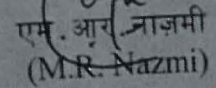 एम. आर. नाज़मी
(M.R. Nazmi)